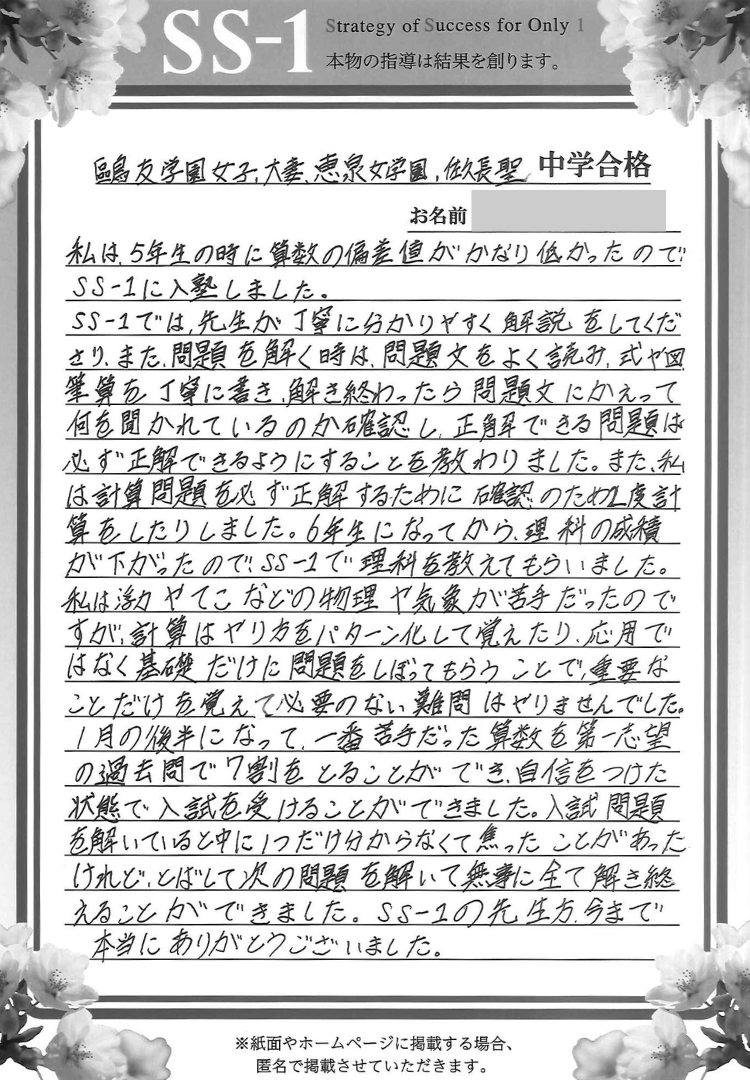 SS-1
Strategy of Success for Only 1
本物の指導は結果を創ります。
鷗友学園女子、大妻、恵泉女学園、佐久長聖 中学合格
お名前
私は、5年生の時に算数の偏差値がかなり低かったので
SS-1に入塾しました。
SS-1では、先生が丁寧に分かりやすく解説をしてくだ
さり、また、問題を解く時は、問題文をよく読み、式や図
筆算を丁寧に書き、解き終わったら問題文にかえって
何を聞かれているのか確認し、正解できる問題は
必ず正解できるようにすることを教わりました。また、私
は計算問題を必ず正解するために確認のため2度計
算をしたりしました。6年生になってから、理科の成積
が下がったので、SS-1で理科を教えてもらいました。
私は浮力やてこなどの物理や気象が苦手だったので
すが、計算はやり方をパターン化して覚えたり、応用で
はなく基礎だけに問題をしぼってもらうことで、重要な
ことだけを覚えて必要のない難問はやりませんでした。
1月の後半になって、一番苦手だった算数を第一志望
の過去問で7割をとることができ、自信をつけた
状態で入試を受けることができました。入試問題
を解いていると中に1つだけ分からなくて焦ったことがあった
けれど、とばして次の問題を解いて無事に全て解き終
えることができました。SS-1の先生方、今まで
本当にありがとうございました。
※紙面やホームページに掲載する場合、
匿名で掲載させていただきます。